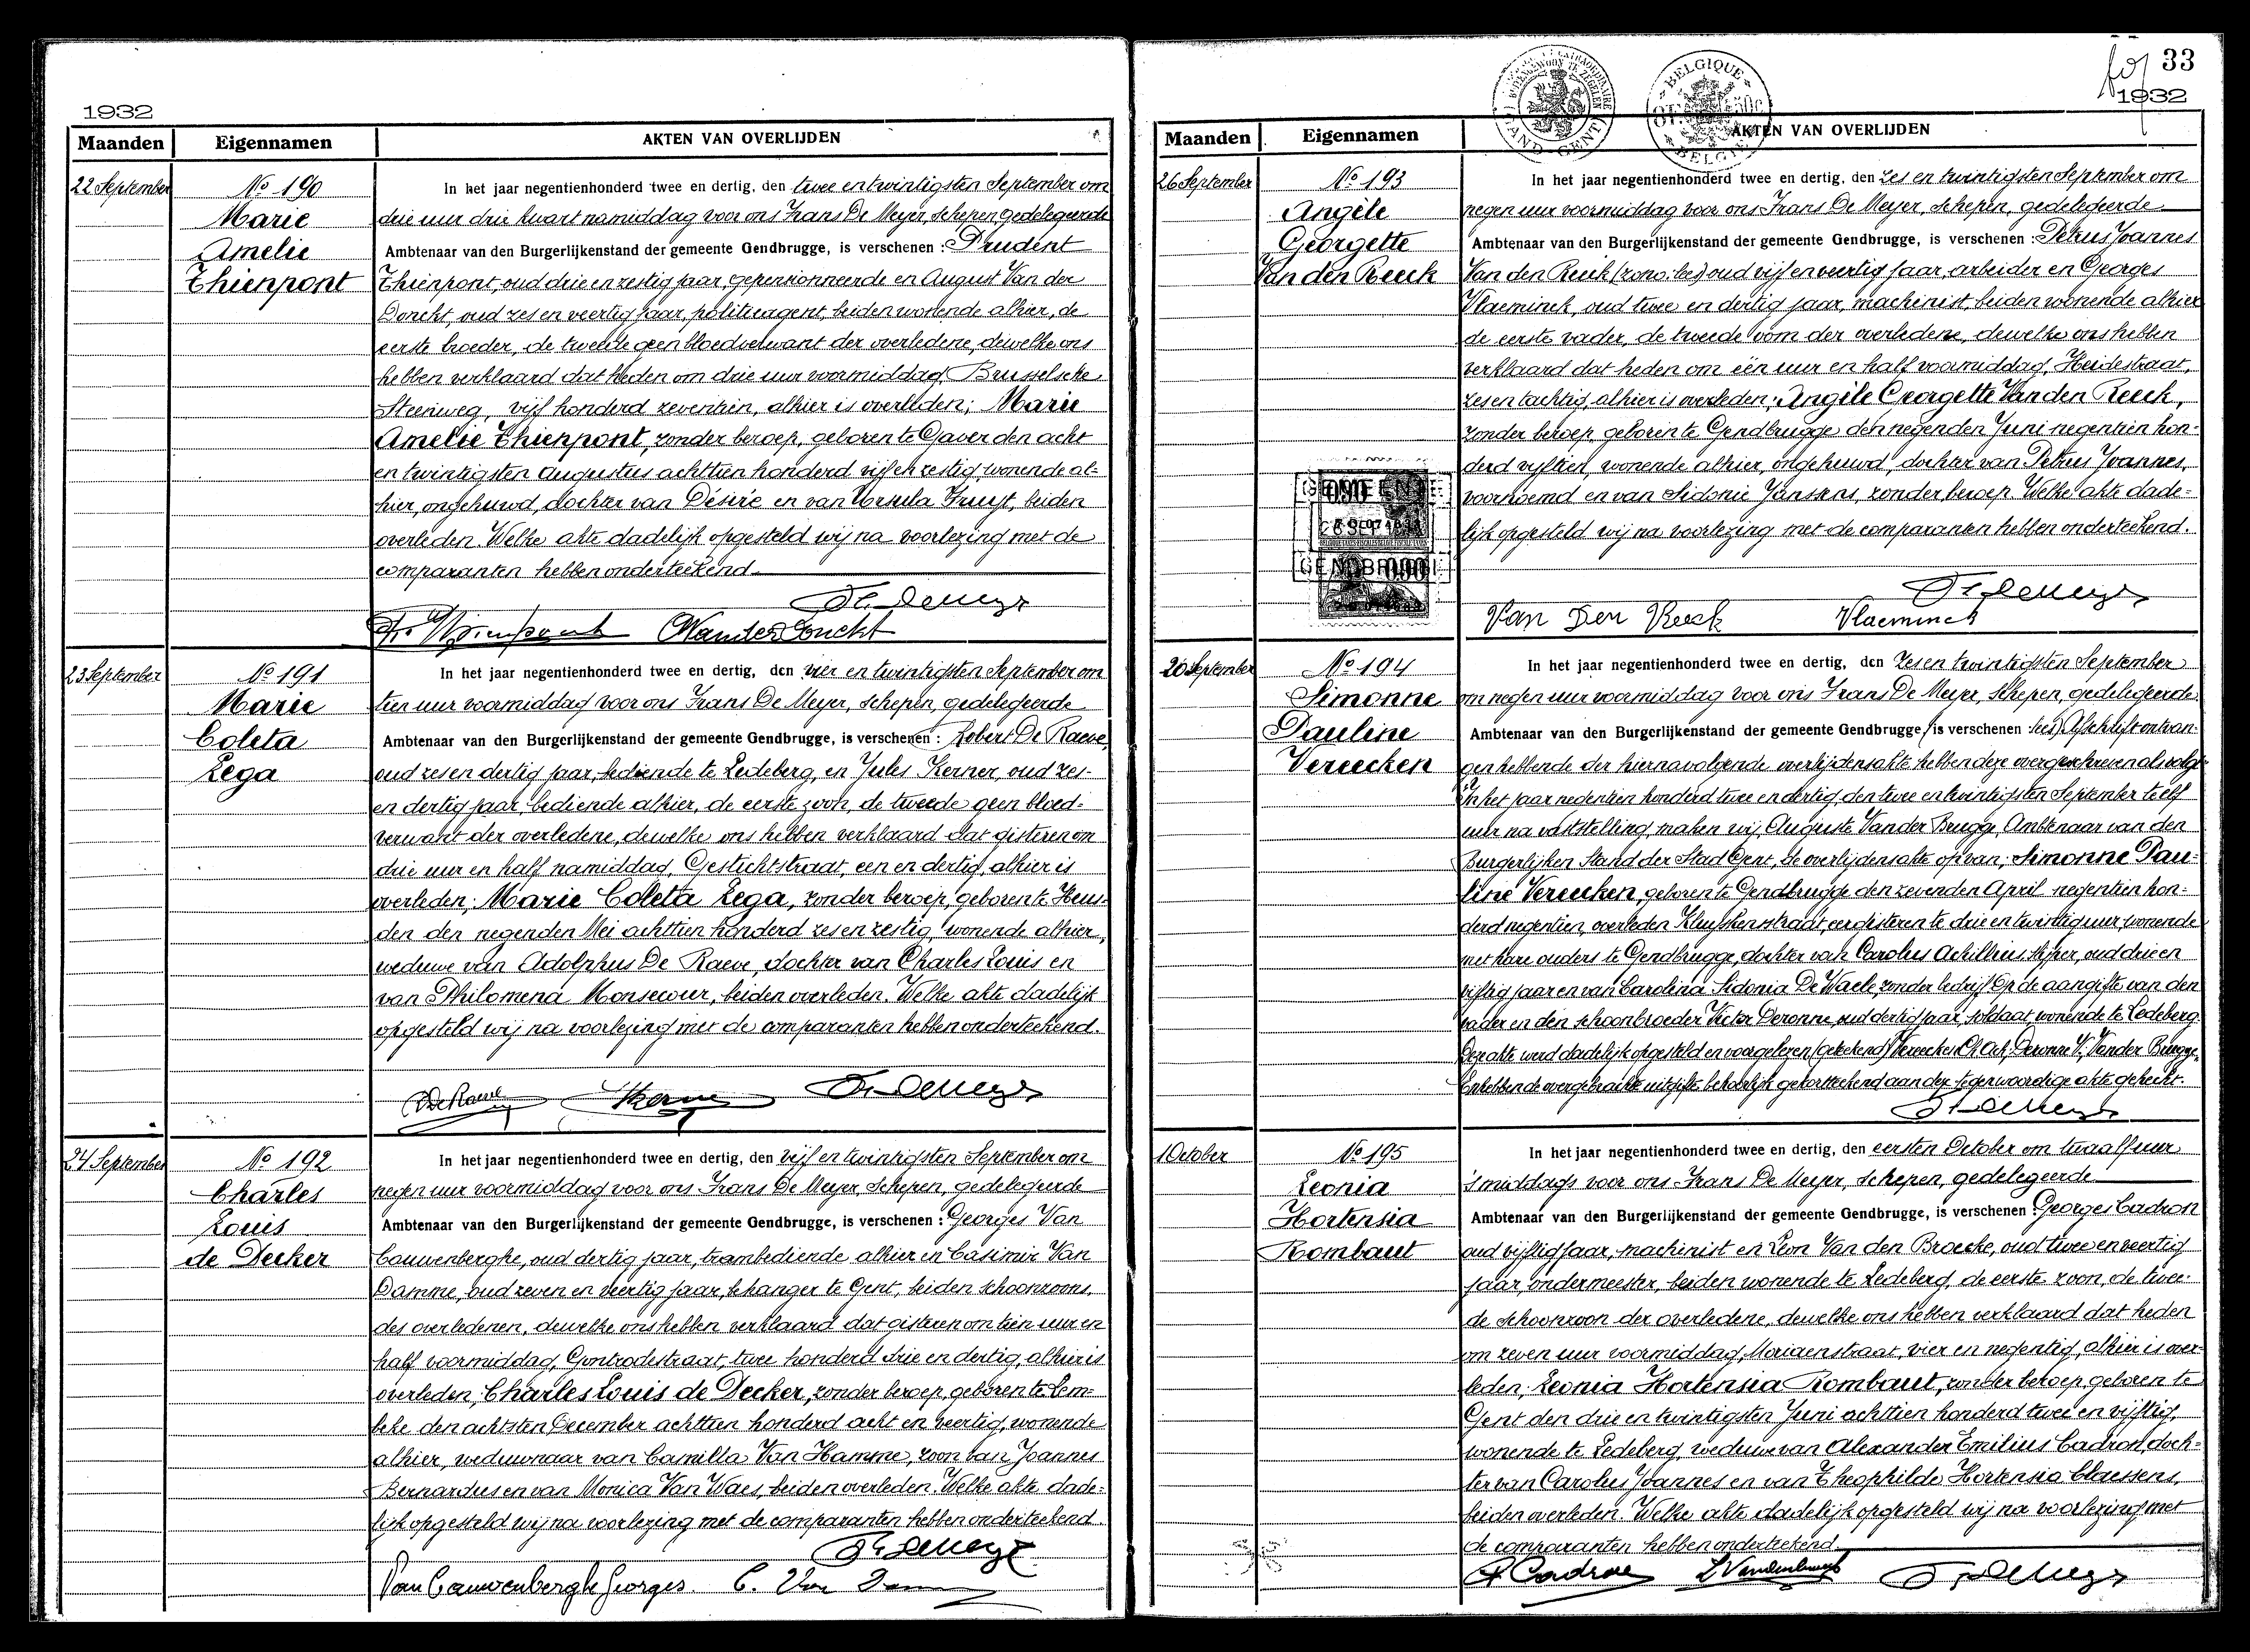 1932
Maanden Eigennamen AKTEN VAN OVERLIJDEN
22 September
No 190
Marie
Amelie
Thienpont
In het jaar negentienhonderd twee en dertig, den twee en twintigsten September om
drie uur drie kwart namiddag voor ons Frans De Meyer, schepen, gedelegeerde
Ambtenaar van den Burgerlijkenstand der gemeente Gendbrugge, is verschenen : Prudent
Thienpont, oud drie en zestig jaar, gepensionneerde en August Van der
Donckt, oud zes en veertig jaar, politieagent, beiden wonende alhier, de
eerste broeder, de tweede geen bloedverwant der overledene, dewelke ons
hebben verklaard dat heden om drie uur voormiddag, Brusselsche
Steenweg, vijf honderd zeventien, alhier is overleden; Marie
Amelie Thienpont, zonder beroep, geboren te Gaver den acht
en twintigsten Augustus achttien honderd vijf en zestig, wonende al-
hier, ongehuwd, dochter van Désiré en van Ursula Fruyt, beiden
overleden. Welke akte dadelijk opgesteld wij na voorlezing met de
comparanten hebben onderteekend.
Fr. De Meyer
Pr. Thienpont VanderDonckt
23 September
No 191
Marie
Coleta
Lega
In het jaar negentienhonderd twee en dertig, den vier en twintigsten September om
tien uur voormiddag voor ons Frans De Meyer, schepen, gedelegeerde
Ambtenaar van den Burgerlijkenstand der gemeente Gendbrugge, is verschenen : Robert De Raeve,
oud zes en dertig jaar, bediende te Ledeberg, en Jules Kerner, oud zes-
en dertig jaar, bediende alhier, de eerste zoon, de tweede geen bloed-
verwant der overledene, dewelke ons hebben verklaard dat gisteren om
drie uur en half namiddag, Gestichtstraat, een en dertig, alhier is
overleden; Marie Coleta Lega, zonder beroep, geboren te Heus-
den den negenden Mei achttien honderd zes en zestig, wonende alhier,
weduwe van Adolphus De Raeve, dochter van Charles Louis en
van Philomena Monsecour, beiden overleden. Welke akte dadelijk
opgesteld wij na voorlezing met de comparanten hebben onderteekend.
DeRaeve Kerner Fr. De Meyer
24 September
No 192
Charles
Louis
de Decker
In het jaar negentienhonderd twee en dertig, den vijf en twintigsten September om
negen uur voormiddag voor ons Frans De Meyer, schepen, gedelegeerde
Ambtenaar van den Burgerlijkenstand der gemeente Gendbrugge, is verschenen : Georges Van
Cauwenberghe, oud dertig jaar, trambediende alhier en Casimir Van
Damme, oud zeven en veertig jaar, behanger te Gent, beiden schoonzoons,
des overledenen, dewelke ons hebben verklaard dat gisteren om tien uur en
half voormiddag, Gontrodestraat, twee honderd drie en dertig, alhier is
overleden; Charles Louis de Decker, zonder beroep, geboren te Lem-
beke den achtsten December achttien honderd acht en veertig, wonende
alhier, weduwnaar van Camilla Van Hamme, zoon van Joannes
Bernardus en van Monica Van Waes, beiden overleden. Welke akte dade-
lijk opgesteld wij na voorlezing met de comparanten hebben onderteekend.
Fr. De Meyer
Van Cauwenberghe Georges. C. Van Damme
fol 33
1932
BELGIQUE
BELGIE
Maanden Eigennamen AKTEN VAN OVERLIJDEN
26 September
No 193
Angèle
Georgette
Van den Reeck
In het jaar negentienhonderd twee en dertig, den zes en twintigsten September om
negen uur voormiddag voor ons Frans De Meyer, schepen, gedelegeerde
Ambtenaar van den Burgerlijkenstand der gemeente Gendbrugge, is verschenen : Petrus Joannes
Van den Reeck oud vijf en veertig jaar, arbeider en Georges
Vlaeminck, oud twee en dertig jaar, machinist, beiden wonende alhier
de eerste vader, de tweede oom der overledene, dewelke ons hebben
verklaard dat heden om één uur en half voormiddag, Heidestraat,
zes en tachtig, alhier is overleden; Angèle Georgette Van den Reeck,
zonder beroep, geboren te Gendbrugge den negenden Juni negentien hon-
derd vijftien, wonende alhier, ongehuwd, dochter van Petrus Joannes,
voornoemd en van Sidonie Janssens, zonder beroep. Welke akte dade-
lijk opgesteld wij na voorlezing met de comparanten hebben onderteekend.
Fr. De Meyer
Van Den Reeck Vlaeminck
26 September
No 194
Simonne
Pauline
Vereecken
In het jaar negentienhonderd twee en dertig, den zes en twintigsten September
om negen uur voormiddag voor ons Frans De Meyer, schepen, gedelegeerde
Ambtenaar van den Burgerlijkenstand der gemeente Gendbrugge, is verschenen (lees) Afschrift ontvan-
gen hebbende der hiernavolgende overlijdensakte hebben deze overgeschreven als volgt
In het jaar negentien honderd twee en dertig, den twee en twintigsten September te elf
uur na vaststelling, maken wij, Auguste Van der Brugge, Ambtenaar van den
Burgerlijken Stand der Stad Gent, de overlijdensakte op van; Simonne Pau-
line Vereecken, geboren te Gendbrugge den zevenden April negentien hon-
derd negentien, overleden Kluyskensstraat, eergisteren te drie en twintig uur, wonende
met hare ouders te Gendbrugge, dochter van Carolus Achillius, oud drie en
vijftig jaar en van Carolina Sidonia De Waele, zonder bedrijf. Op de aangifte van den
vader en den schoonbroeder Victor Deronne, oud dertig jaar, soldaat wonende te Ledeberg.
Deze akte werd dadelijk opgesteld en voorgelezen (geteekend) Vereecken Ch. Ach, Deronne V. Vander Brugge.
En hebben de overgebrachte uitgifte behoorlijk gekortteekend aan de tegenwoordige akte gehecht.
Fr. De Meyer
1 October
No 195
Leonia
Hortensia
Rombaut
In het jaar negentienhonderd twee en dertig, den eersten October om twaalf uur
's middags voor ons Frans De Meyer, schepen, gedelegeerde
Ambtenaar van den Burgerlijkenstand der gemeente Gendbrugge, is verschenen : Georges Cadron
oud vijftig jaar, machinist en Leon Van den Broecke, oud twee en veertig
jaar, ondermeester, beiden wonende te Ledeberg, de eerste zoon, de twee-
de schoonzoon der overledene, dewelke ons hebben verklaard dat heden
om zeven uur voormiddag, Moriaenstraat, vier en negentig, alhier is over-
leden; Leonia Hortensia Rombaut, zonder beroep, geboren te
Gent den drie en twintigsten Juni achttien honderd twee en vijftig,
wonende te Ledeberg, weduwe van Alexander Emilius Cadron, doch-
ter van Carolus Joannes en van Theophilde Hortensia Claessens,
beiden overleden. Welke akte dadelijk opgesteld wij na voorlezing met
de comparanten hebben onderteekend.
G. Cadron L. Vandenbroecke Fr. De Meyer